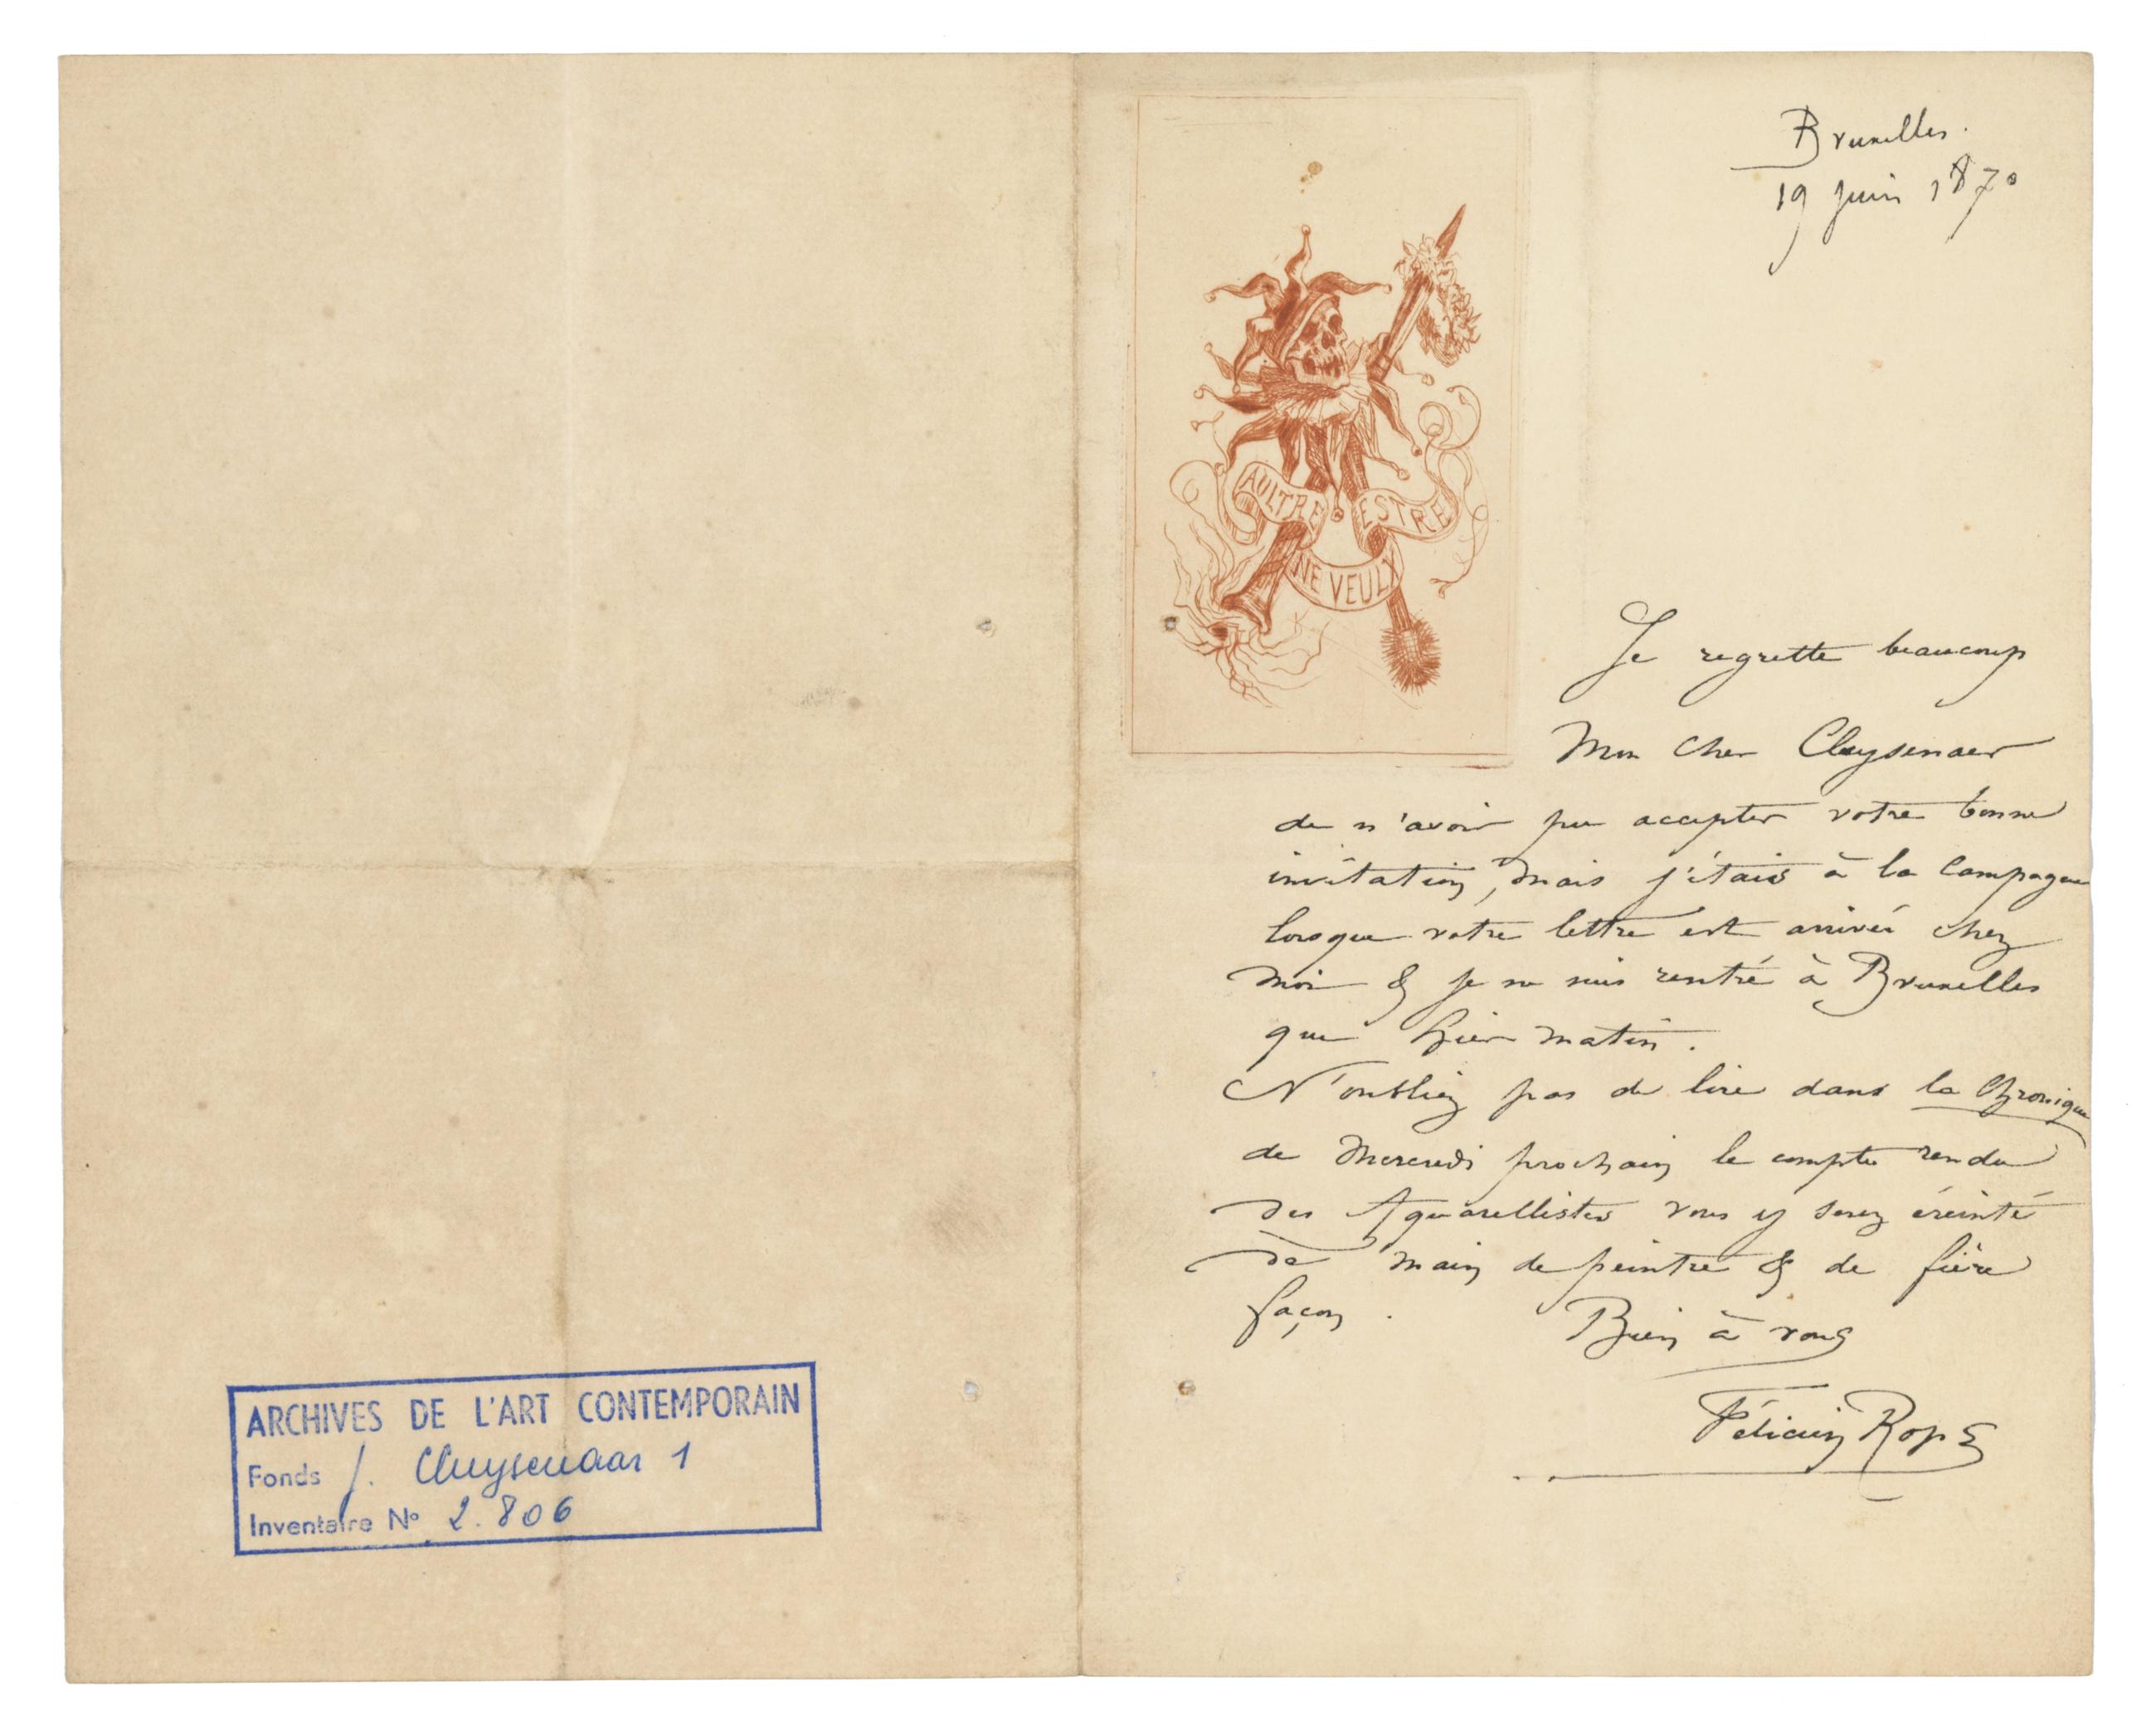 Bruxelles.
19 juin 1870
AULTRE ESTRE
NE VEULX
Je regrette beaucoup
Mon cher Cluysenaer
de n'avoir pu accepter votre bonne
invitation, mais j'étais à la Campagne
lorsque votre lettre est arrivée chez
moi & je ne suis rentré à Bruxelles
que hier matin.
N'oubliez pas de lire dans la Chronique
de Mercredi prochain le compte rendu
des Aquarellistes vous y serez éreinté
de main de peintre & de fière
façon.
Bien à vous
Félicien Rops
ARCHIVES DE L'ART CONTEMPORAIN
Fonds J. Cluysenaar 1
Inventaire No 2.806